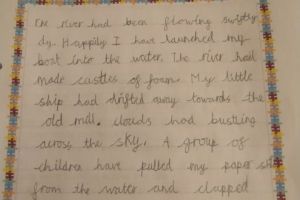 The river had been flowing swiftly
by. Happily I have launched my
boat into the water. The river had
made castles of foam. My little
ship had drifted away towards the
old mill. clouds had bustling
across the sky. A group of
children have pulled my paper
from the water and clapped